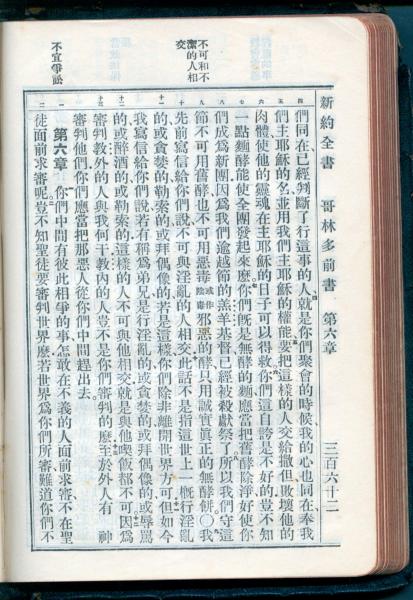 新約全書 哥林多前書 第六章 三百六十二
們同在已經判斷了行這事的人就是你們聚會的時候我的心也同在奉我
們主耶穌的名並用我們主耶穌的權能要把這樣的人交給撒但敗壞他的
肉體使他的靈魂在主耶穌的日子可以得救你們這自誇是不好的豈不知
一點麵酵能使全團發起來麼你們既是無酵的麵應當把舊酵除淨好使你
們成爲新團因爲我們逾越節的羔羊基督已經被殺獻祭了所以我們守這
節不可用舊酵也不可用惡毒或作陰毒邪惡的酵只用誠實眞正的無酵餅〇我
先前寫信給你們說不可與淫亂的人相交此話不是指這世上一槪行淫亂
的或貪婪的勒索的或拜偶像的若是這樣你們除非離開世界方可但如今
我寫信給你們說若有稱爲弟兄是行淫亂的或貪婪的或拜偶像的或辱罵
的或醉酒的或勒索的這樣的人不可與他相交就是與他喫飯都不可因爲
審判敎外的人與我何干敎內的人豈不是你們審判的麼至於外人有 神
審判他們你們應當把那惡人從你們中間趕出去
第六章 你們中間有彼此相爭的事怎敢在不義的人面前求審不在聖
徒面前求審呢豈不知聖徒要審判世界麼若世界爲你們所審難道你們不
不可和不潔的人相交
不宜爭訟
四
五
六
七
八
九
十
十一
十二
十三
一
二